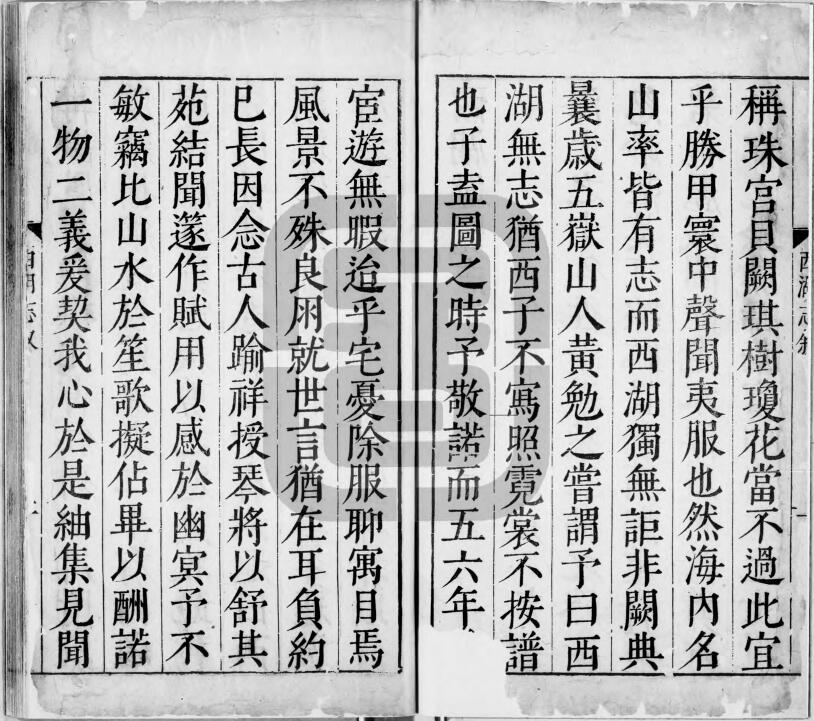 稱珠宮貝闕琪樹瓊花當不過此宜
乎勝甲寰中聲聞夷服也然海內名
山率皆有志而西湖獨無詎非闕典
曩歲五嶽山人黃勉之嘗謂予曰西
湖無志猶西子不寫照霓裳不按譜
也子盍圖之時予敬諾而五六年
宦遊無暇迨乎宅憂除服聊寓目焉
風景不殊良朋就世言猶在耳負約
已長因念古人踰祥授琴將以舒其
菀結聞篴作賦用以感於幽冥予不
敏竊比山水於笙歌擬佔畢以酬諾
一物二義爰契我心於是紬集見聞
西湖志敘
西湖志敘